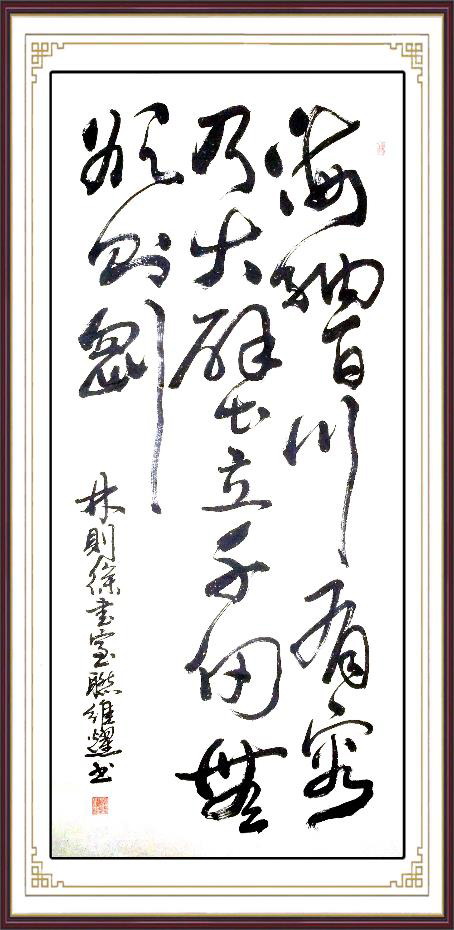 海纳百川有容
乃大壁立千仞無
欲则刚
林则徐書室联维耀书